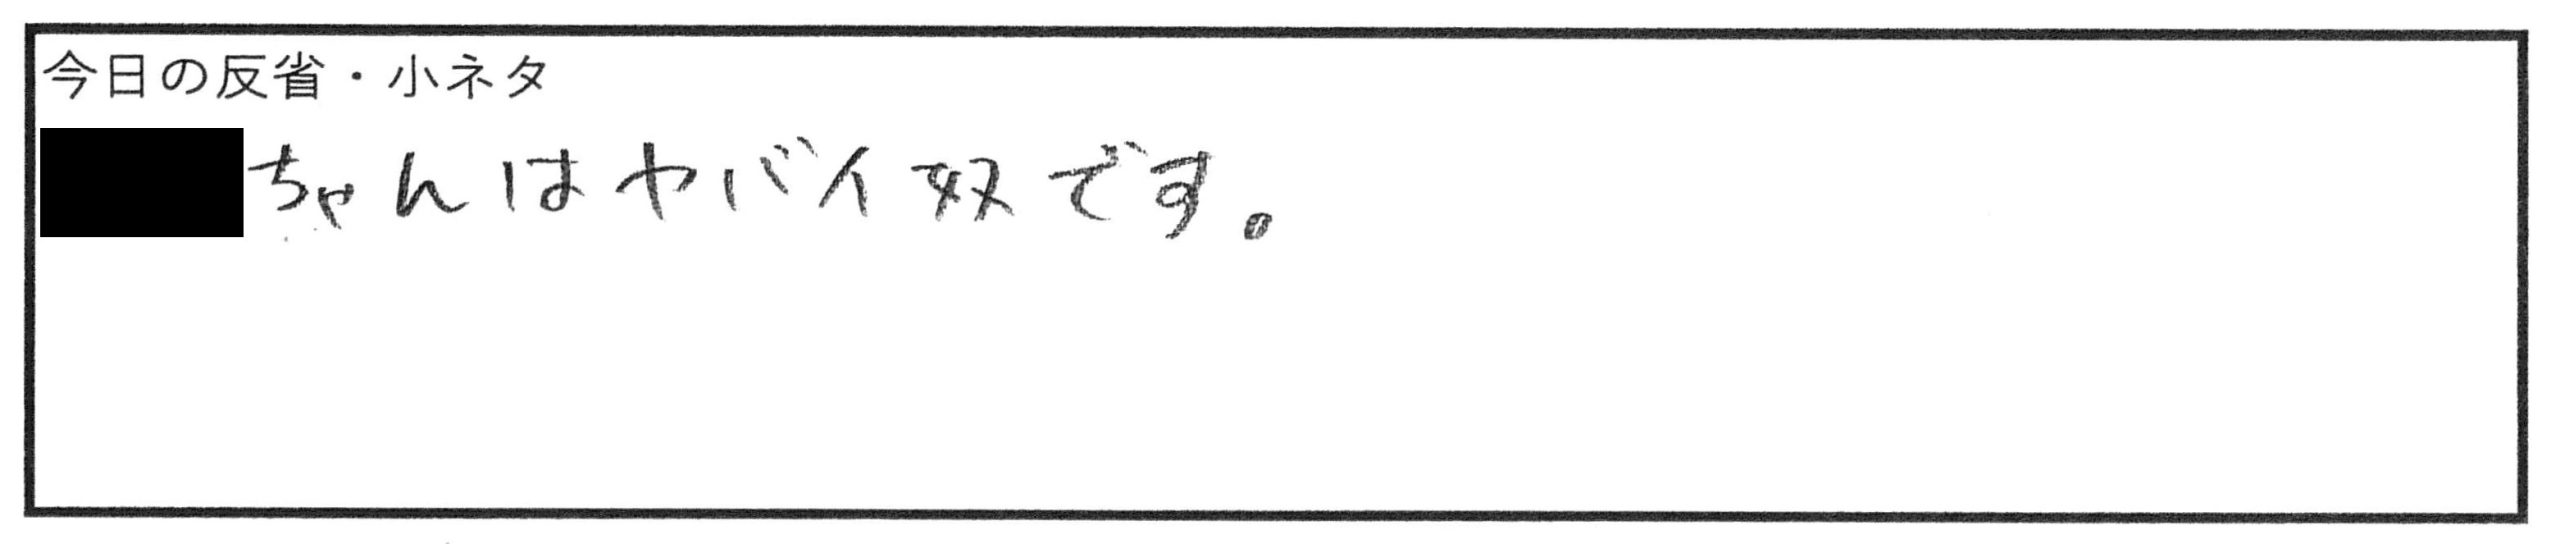 今日の反省・小ネタ
ちゃんはヤバイ奴です。